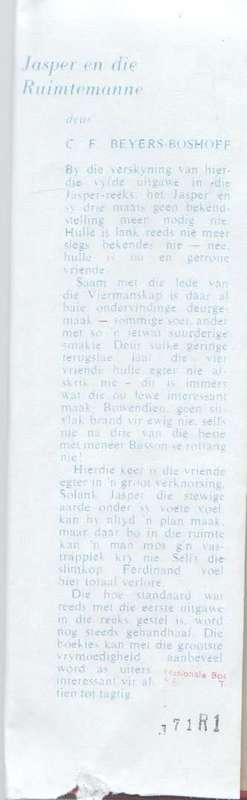 Jasper en die
Ruimtemanne
deur
C. F. BEYERS-BOSHOFF
By die verskyning van hier-
die vyfde uitgawe in die
Jasper-reeks, het Jasper en
sy drie maats geen bekend-
stelling meer nodig nie.
Hulle is lank reeds nie meer
slegs bekendes nie — nee,
hulle is ou en getroue
vriende.
Saam met die lede van
die Viermanskap is daar al
baie ondervindinge deurge-
maak — sommige soet, ander
met so 'n ietwat suurderige
smakie. Deur sulke geringe
terugslae laat die vier
vriende hulle egter nie af-
skrik nie - dit is immers
wat die ou lewe interessant
maak. Buwendien, geen su-
slak brand vir ewig nie, selfs
nie na drie van die beste
met meneer Basson se rottang
nie!
Hierdie keer is die vriende
egter in 'n groot verknorsing.
Solank Jasper die stewige
aarde onder sy voete voel,
kan hy altyd 'n plan maak,
maar daar bo in die ruimte
kan 'n man mos g'n vas-
trapplek kry nie. Selfs die
slimkop Ferdinand voel
hier totaal verlore.
Die hoë standaard wat
reeds met die eerste uitgawe
in die reeks gestel is, word
nog steeds gehandhaaf. Die
boekies kan met die grootste
vrymoedigheid aanbeveel
word as uiters
interessant vir al
tien tot tagtig.
asionale Boe
T.
71R1